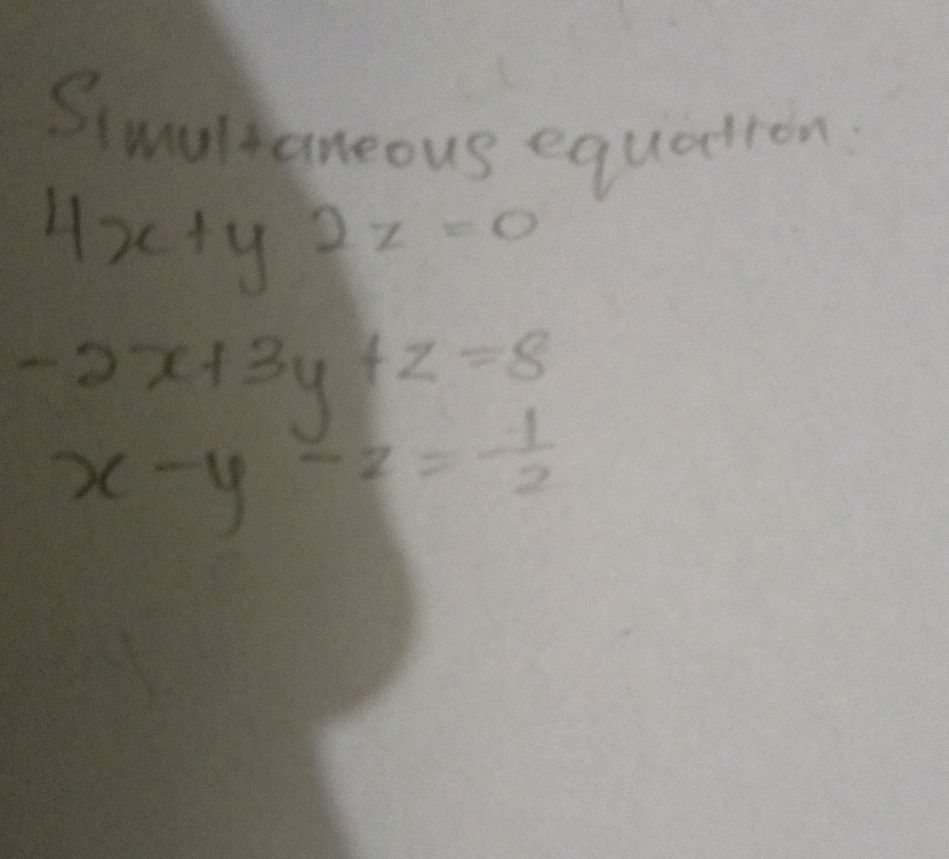 Simultaneous equation.
4x+y 2z =0
-2x+3y +z =8
x -y -z = -1/2